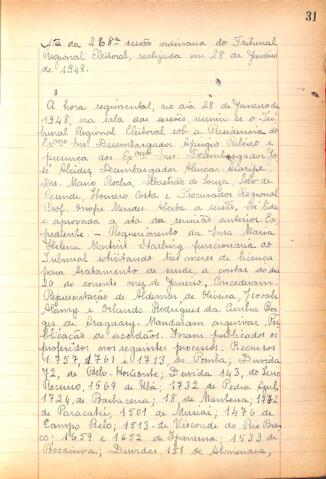 31
Ata da 268ª sessão ordinaria do Tribunal
Regional Eleitoral, realizada em 28 de Janeiro
de 1948.
A hora regimental, no dia 28 de Janeiro de
1948, na sala das sessões, reuniu-se o Tri
bunal Regional Eleitoral sob a Presidencia do
Exmo Snr. Desembargador Aprigio Ribeiro e
presença dos Exmos Snrs. Desembargador Jo
sé Alcides, Desembargador Alencar Araripe,
Drs. Mario Rocha, Sebastião de Souza, Lobo de
Rezende, Honorio Costa e Procurador Regional
Prof. Onofre Mendes. Aberta a sessão, foi lida
e aprovada a ata da reunião anterior. Ex
pediente. - Requerimento da Snra. Maria
Helena Martins Starling funcionaria do
Tribunal solicitando tres meses de licença
para tratamento de saude, a contar do dia
20 do corrente mez de Janeiro, Concederam.
Representação de Aldemar de Oliveira,
e Orlando Rodrigues da Cunha Bor
ges de Araguary. Mandaram arquivar. Pu
blicação de acordãos. Foram publicados os
proferidos nos seguintes processos. Recursos
1.757, 1761 e 1713 de Pomba; Duvida
72, de Belo-Horizonte; Duvida 143, de Ferro
1569 de Ubá; 1732 de Pedra Azul
1724, de Barbacena; 18, de Mantena, 1772
de Paracatú, 1501 de Muriaé; 1476 de
Campo Belo; 1513 de Visconde do Rio Bran
co; 1659 e 1652 de Ipanema; 1533 de
Bocaiuva; Duvidas 151 de Almenara,